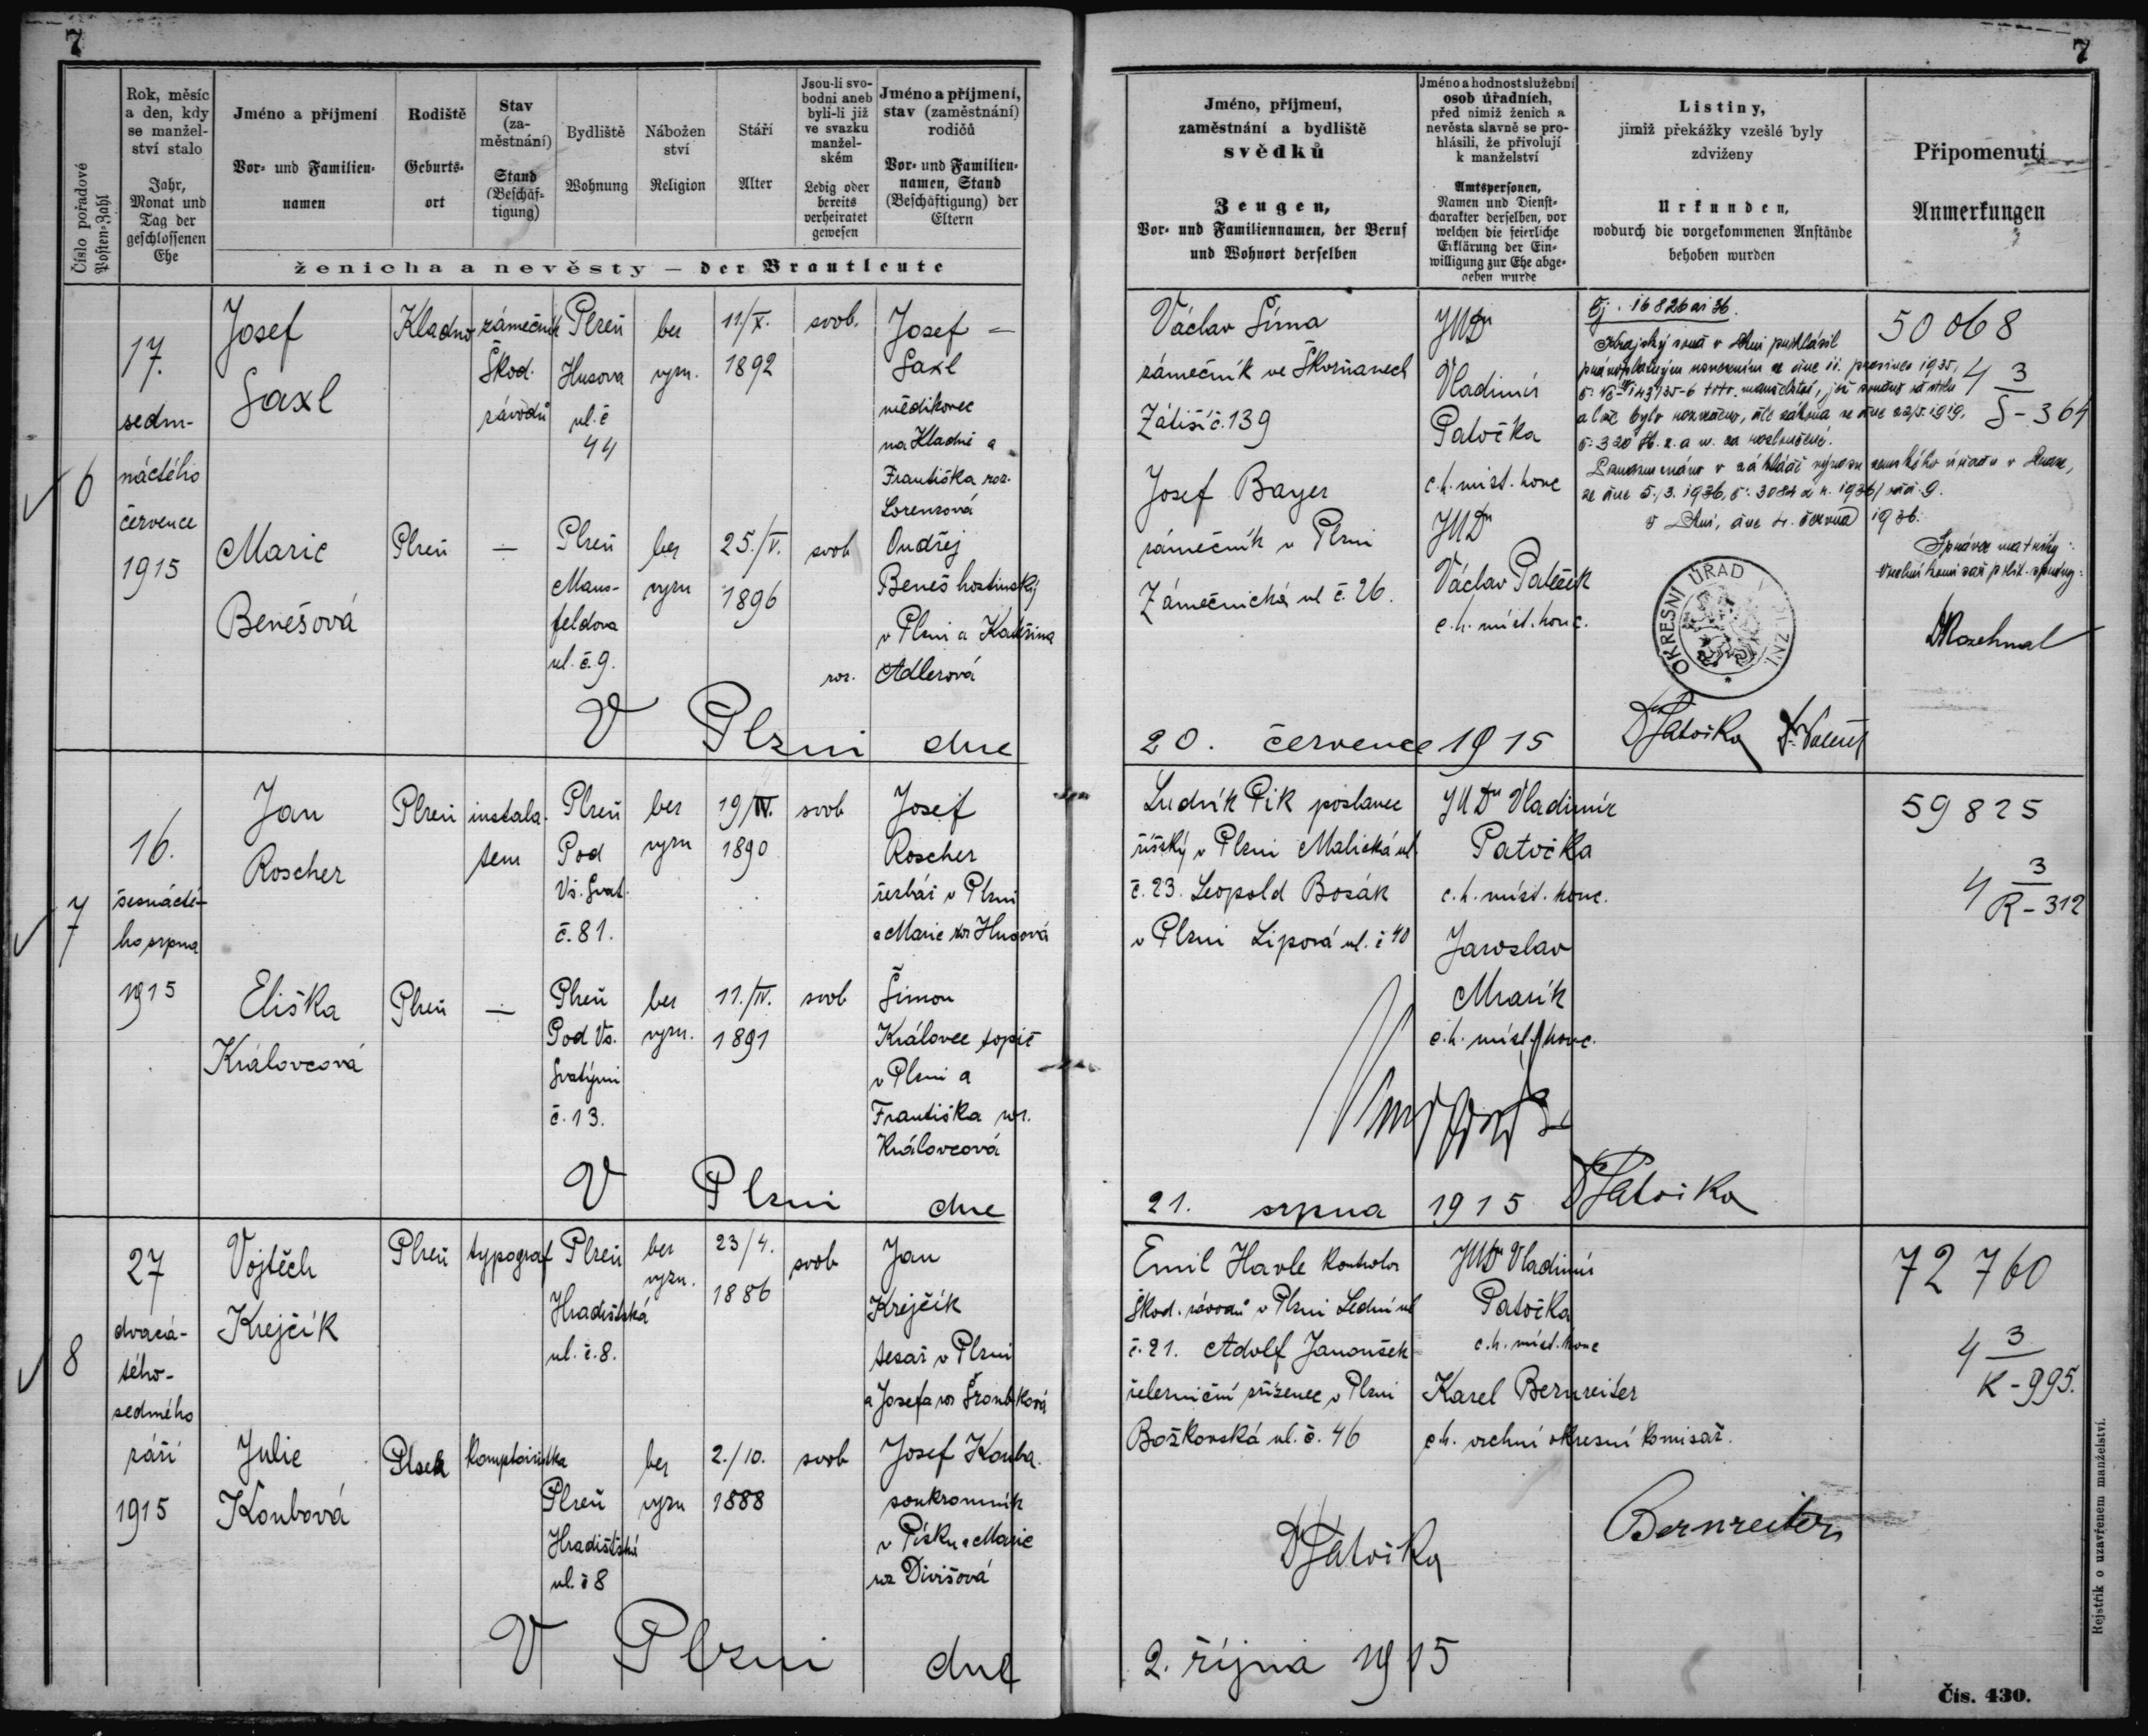 7
7
Číslo pořadové
Posten-Zahl
Rok, měsíc
a den, kdy
se manžel-
ství stalo
Jahr,
Monat und
Tag der
geschlossenen
Ehe
Jméno a příjmení
Vor- und Familien-
namen
Rodiště
Geburts-
ort
Stav
(za-
městnání)
Stand
(Beschäf-
tigung)
Bydliště
Wohnung
Nábožen
ství
Religion
Stáří
Alter
Jsou-li svo-
bodni aneb
byli-li již
ve svazku
manžel-
ském
Ledig oder
bereits
verheiratet
gewesen
Jméno a příjmení,
stav (zaměstnání)
rodičů
Vor- und Familien-
namen, Stand
(Beschäftigung) der
Eltern
ženicha a nevěsty — der Brautleute
Jméno, příjmení,
zaměstnání a bydliště
svědků
Zeugen,
Vor- und Familiennamen, der Beruf
und Wohnort derselben
Jméno a hodnost služební
osob úřadních,
před nimiž ženich a
nevěsta slavně se pro-
hlásili, že přivolují
k manželství
Amtspersonen,
Namen und Dienst-
charakter derselben, vor
welchen die feierliche
Erklärung der Ein-
willigung zur Ehe abge-
geben wurde
Listiny,
jimiž překážky vzešlé byly
zdviženy
Urkunden,
wodurch die vorgekommenen Anstände
behoben wurden
Připomenutí
Anmerkungen
6
17.
sedm-
náctého
července
1915
Josef
Saxl
Kladno
zámečník
Škod.
závodů
Plzeň
Husova
ul. č
44
bez
vyzn.
11/X.
1892
svob.
Josef
Saxl
mědikovec
na Kladně a
Františka roz.
Lorenzová
Marie
Benešová
Plzeň
—
Plzeň
Mans-
feldova
ul. č. 9.
bez
vyzn
25./V.
1896
svob
Ondřej
Beneš hostinský
v Plzni a Kateřina
roz. Adlerová
Václav Šíma
zámečník ve Škvrňanech
Zátiší č. 139
Josef Bayer
zámečník v Plzni
Zámečnická ul č. 26.
JUDr
Vladimír
Patočka
c. k. míst. konc
JUDr
Václav
c. k. míst. konc.
Čj. 16826 ai 36.
Krajský soud v
prosince 1935,
manželství,
bylo rozvedeno, dle zákona ze dne 22/5. 1919,
č. 320 Sb. z. a n. za rozloučené.
v základě výnosu zemského úřadu v Praze,
ze dne 5./3. 1936,
dne 4. června 1936.
Správce matriky:
OKRESNÍ ÚŘAD V PLZNI
50068
4 3
S-364
V Plzni dne
20. července 1915
Dr Patočka
7
16.
šesnácté-
ho srpna
1915
Jan
Roscher
Plzeň
instala-
tem
Plzeň
Pod
Vš. Svat.
č. 81.
bez
vyzn
19/IV.
1890
svob
Josef
Roscher
řezbář v Plzni
a Marie roz Husová
Eliška
Královcová
Plzeň
—
Plzeň
Pod Vš.
Svatými
č. 13.
bez
vyzn.
11./IV.
1891
svob
Šimon
Královec topič
v Plzni a
Františka roz.
Královcová
Ludvík Pik poslanec
říšský v Plzni Malická ul.
č. 23. Leopold Bosák
v Plzni Lipová ul. č 40
JUDr Vladimír
Patočka
c. k. míst. konc.
Jaroslav
Mrazík
c. k. míst. konc.
59825
4 3
R-312
V Plzni dne
21. srpna 1915
Dr Patočka
8
27
dvacá-
tého-
sedmého
září
1915
Vojtěch
Krejčík
Plzeň
typograf
Plzeň
Hradištská
ul. č. 8.
bez
vyzn.
23/4.
1886
svob
Jan
Krejčík
tesař v Plzni
a Josefa roz
Julie
Koubová
Písek
komptoiristka
Plzeň
Hradištská
ul. č 8
bez
vyzn
2./10.
1888
svob
Josef Kouba
soukromník
v Písku a Marie
roz Divišová
Emil Havle kontrolor
Škod. závodů v Plzni Lední ul
č. 21. Adolf Janoušek
železniční zřízenec v Plzni
Božkovská ul. č. 46
JUDr Vladimír
Patočka
c. k. míst. konc
Karel Bernreiter
c. k. vrchní okresní komisař.
72760
4 3
K-995.
Dr Patočka
Bernreiter
V Plzni dne
2. října 1915
Rejstřík o uzavřeném manželství.
Čís. 430.